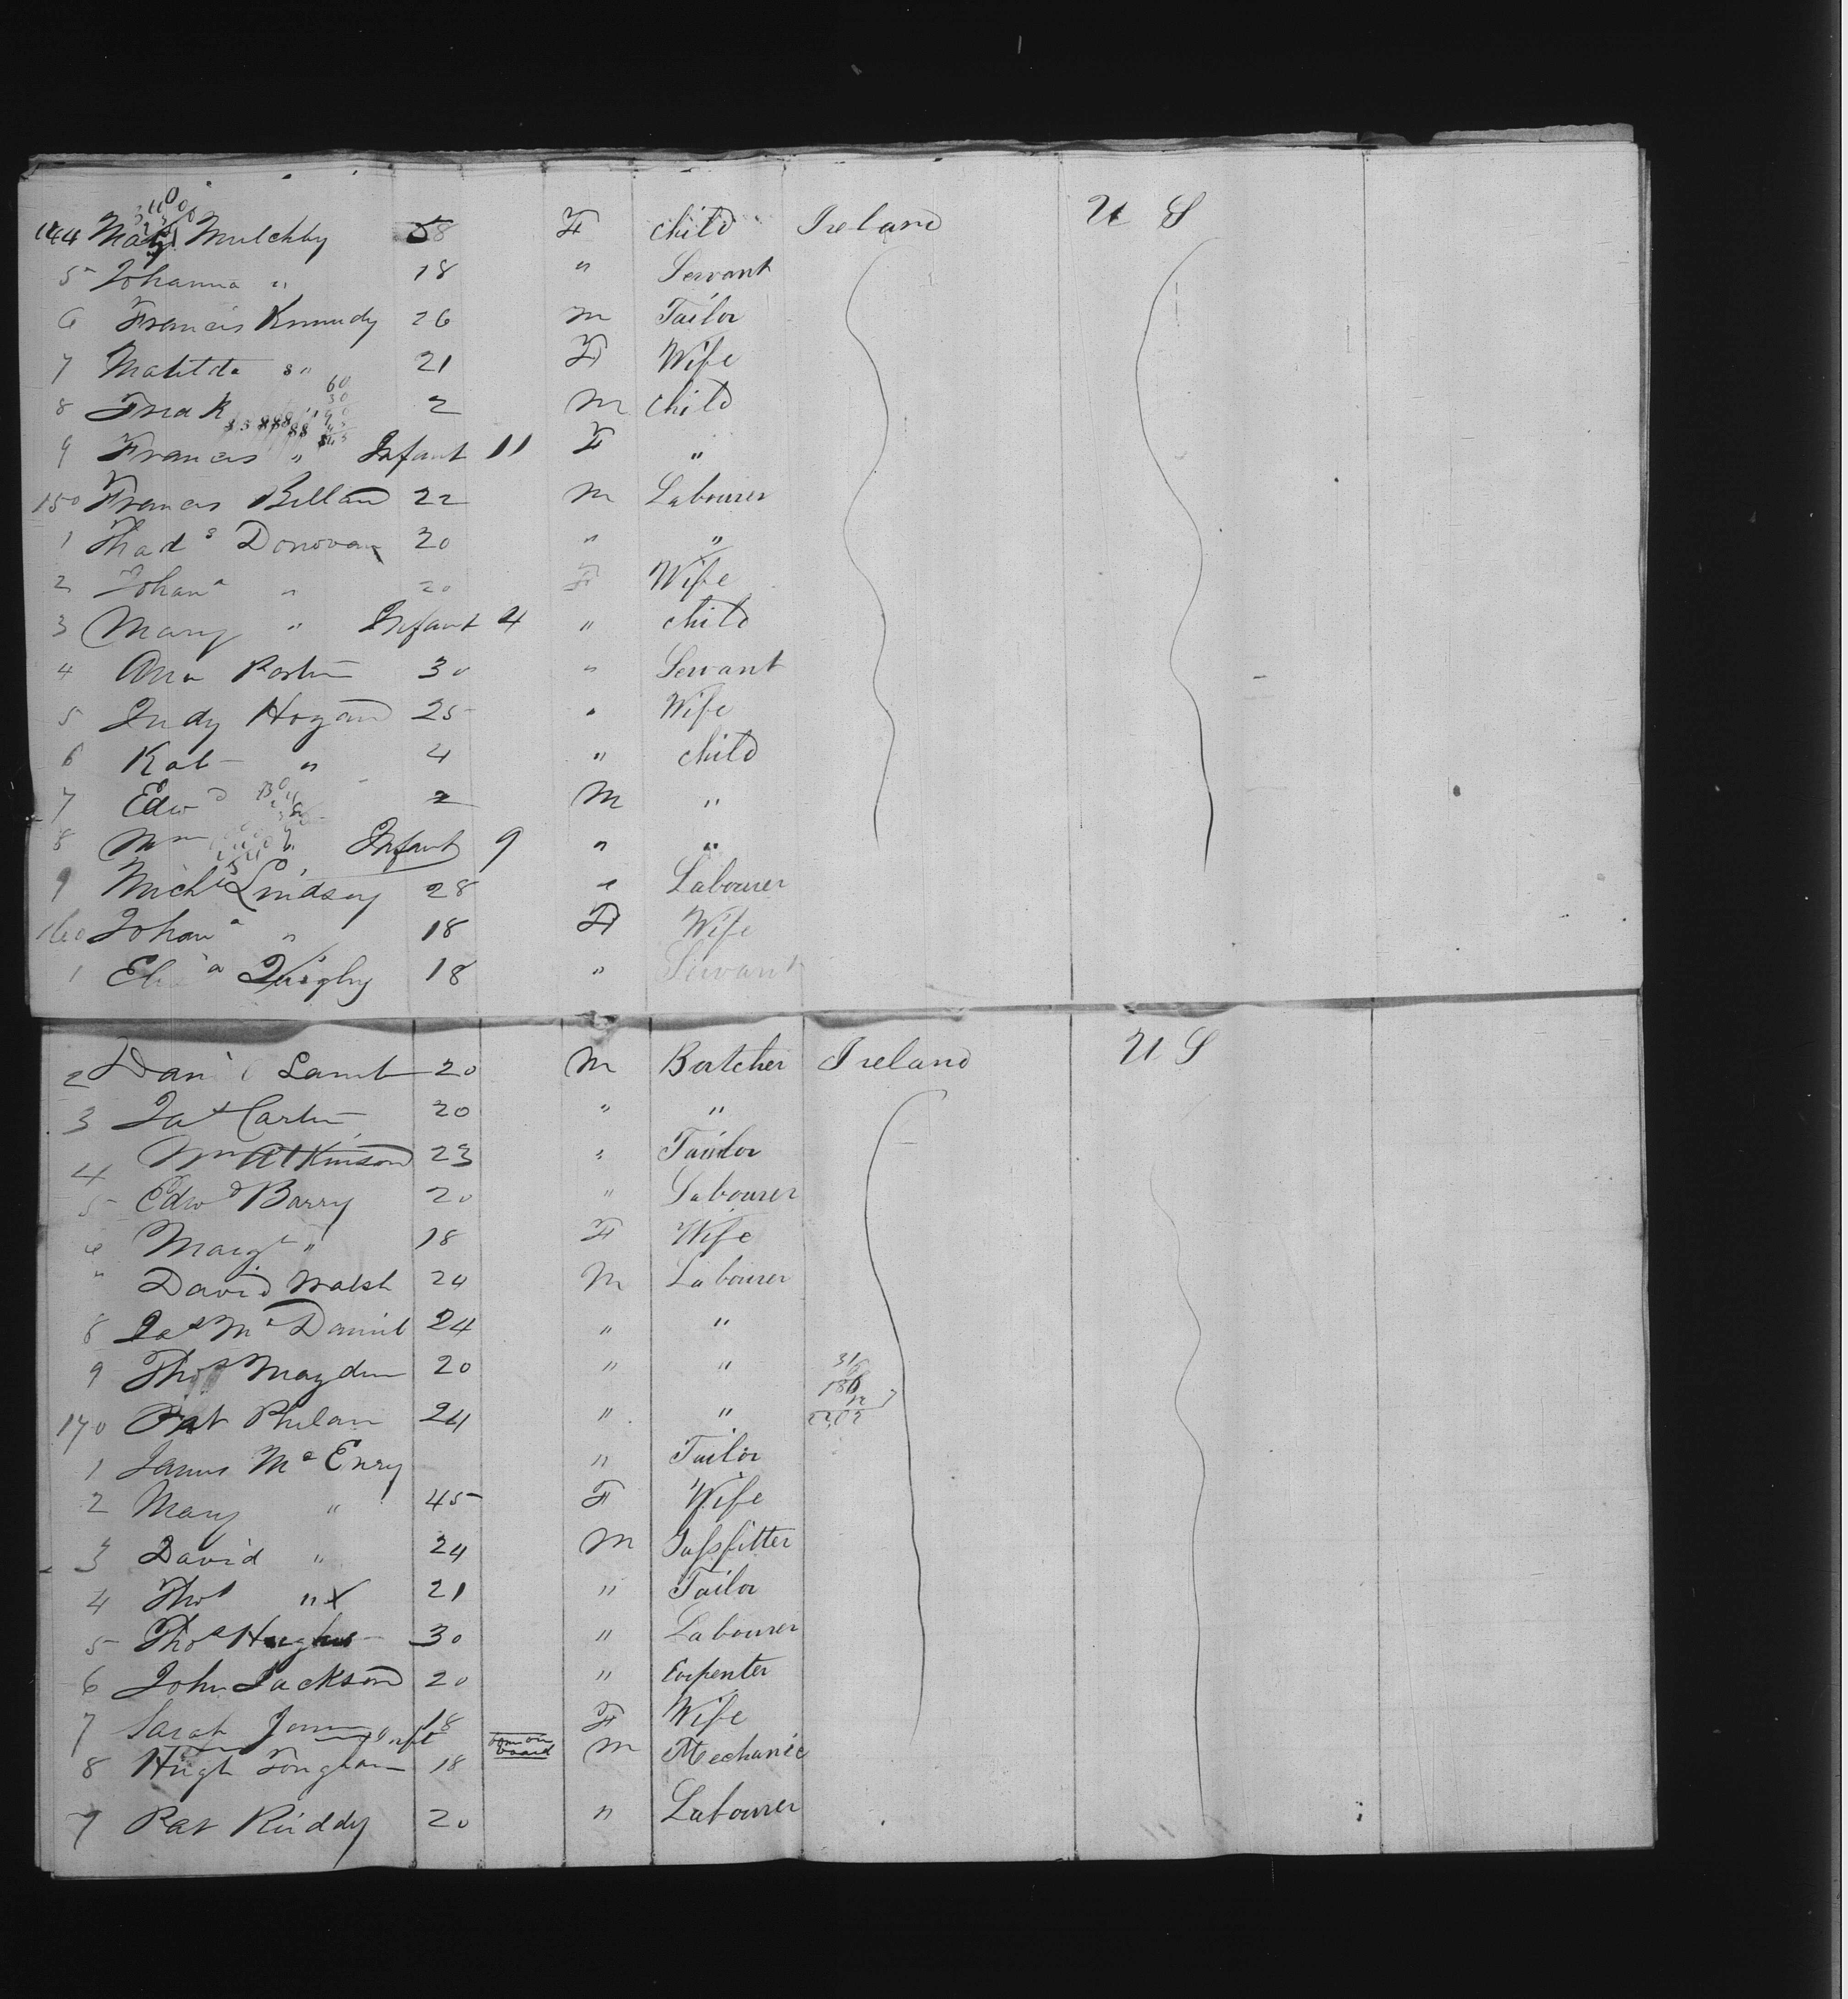 144 Mulchby 8 F child Ireland U S
5 Johanna " 18 " Servant
6 Francis Kennedy 26 m Tailor
7 Matilda " 21 F Wife
8 2 m child
9 Francis " Infant 11 F "
150 Francis 22 m Labourer
1 Thad s Donovan 20 " "
2 Johan a " 20 F Wife
3 Mary " Infant 4 " child
4 Ann 30 " Servant
5 Judy Hogan 25 " Wife
6 Kat " 4 " child
7 Edw d 2 m "
8 Wm " Infant 9 " "
9 Mich l Lindsay 28 " Labourer
160 Johan a " 18 F Wife
1 Eliz a Quigley 18 " Servant
2 Dan l Lamb 20 m Butcher Ireland U S
3 Ja s 20 " "
4 Wm Atkinson 23 " Tailor
5 Edw d Barry 20 " Labourer
6 Marg t " 18 F Wife
" David Walsh 24 m Labourer
8 Ja s Mc Daniel 24 " "
9 Tho s 20 " "
170 Pat Phelan 24 " "
1 James Mc Enry " Tailor
2 Mary " 45 F Wife
3 David " 24 m Gassfitter
4 Tho s " X 21 " Tailor
5 Tho s Hughes 30 " Labourer
6 John Jackson 20 " Carpenter
7 Sarah 18 F Wife
Inft born on board
8 Hugh 18 m Mechanic
7 Pat Ruddy 20 " Labourer